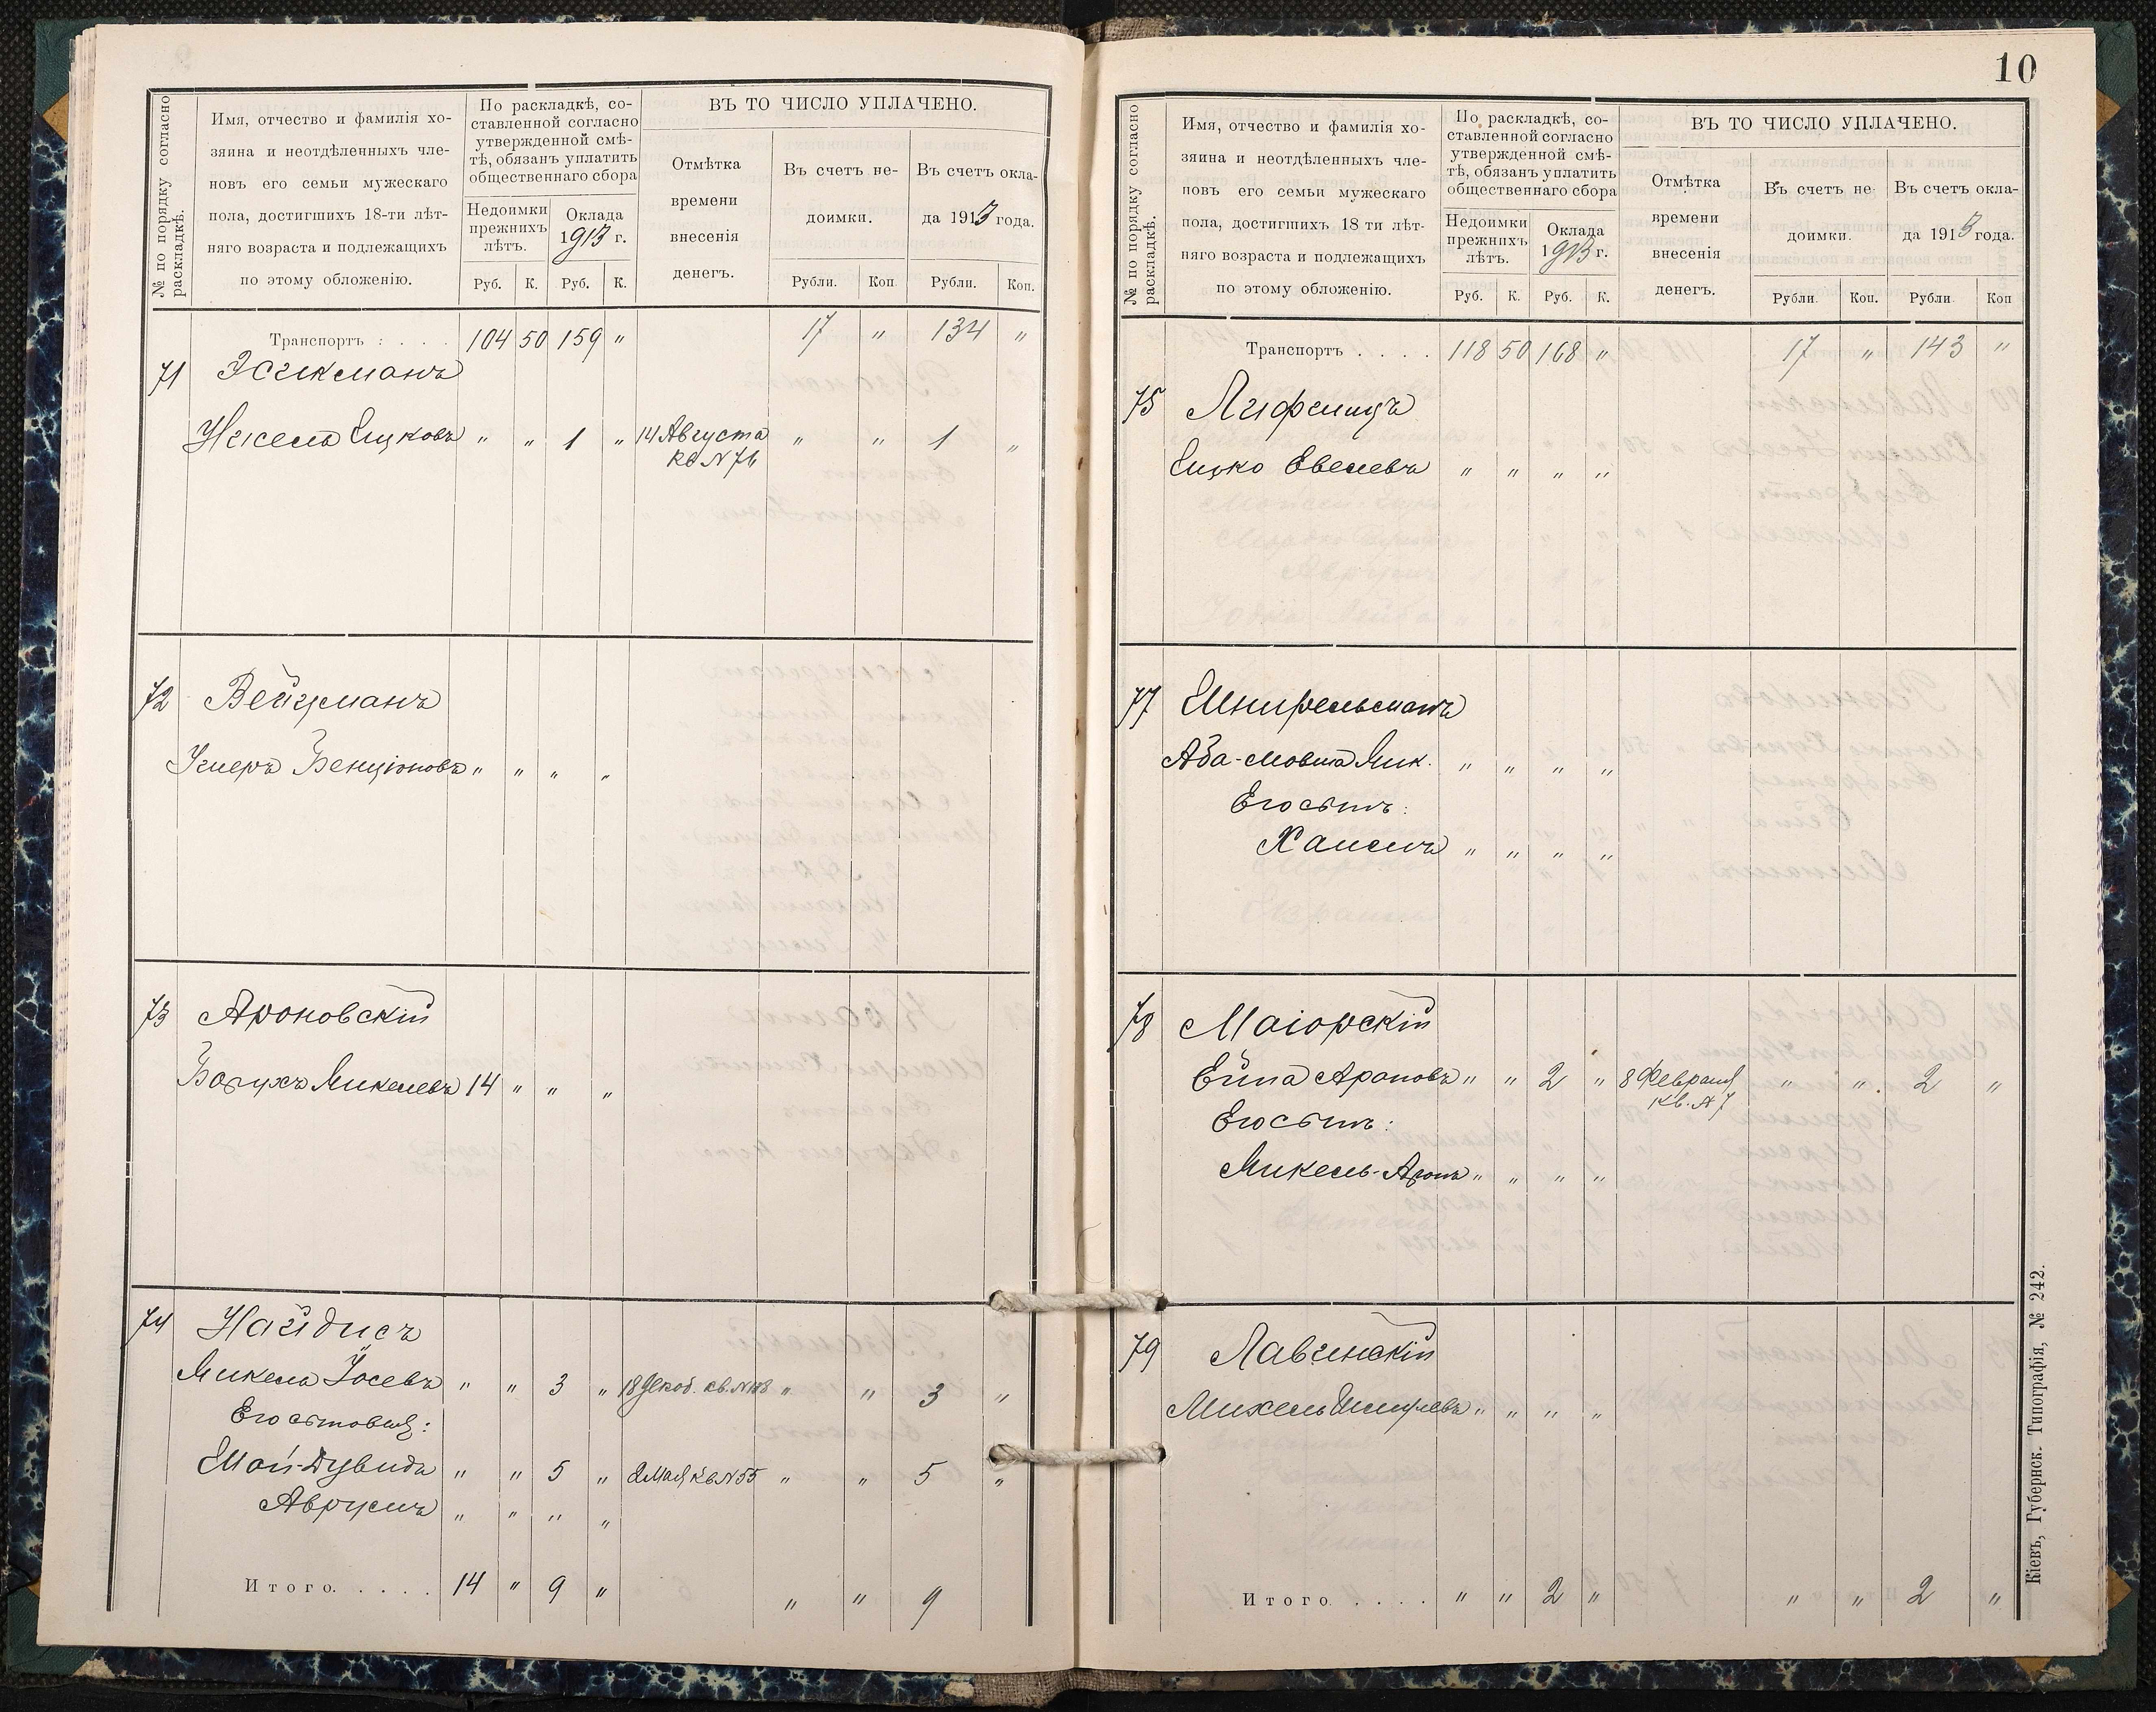 № по порядку согласно
раскладкѣ.
Имя, отчество и фамилія хо-
зяина и неотдѣленныхъ чле-
новъ его семьи мужескаго
пола, достигшихъ 18-ти лѣт-
няго возраста и подлежащихъ
по этому обложенію.
По раскладкѣ, со-
ставленной согласно
утвержденной смѣ-
тѣ, обязанъ уплатить
общественнаго сбора
Недоимки
прежнихъ
лѣтъ.
Оклада
1913 г.
Руб. К. Руб. К.
ВЪ ТО ЧИСЛО УПЛАЧЕНО.
Отмѣтка
времени
внесенія
денегъ.
Въ счетъ не-
доимки.
Въ счетъ окла-
да 1913 года.
Рубли. Коп. Рубли. Коп.
Транспортъ : . . . 104 50 159 " 17 " 134 "
71
Нисель Ицковъ " " 1 " 14 Августа " " 1 "
кв N 76
72 Вейцманъ
Бенціоновъ " " " "
73 Ароновскій
Борухъ Микелевъ 14 " " "
74 Найдисъ
Микель Іосевъ " " 3 " 18 кв. N 188 " " 3 "
Его сыновья:
Мой-Дувидъ " " 5 " 2 Мая кв N 55 " " 5 "
Аврумъ " " " "
Итого. . . . . 14 " 9 " " " 9
10
№ по порядку согласно
раскладкѣ.
Имя, отчество и фамилія хо-
зяина и неотдѣленныхъ чле-
новъ его семьи мужескаго
пола, достигшихъ 18 ти лѣт-
няго возраста и подлежащихъ
по этому обложенію.
По раскладкѣ, со-
ставленной согласно
утвержденной смѣ-
тѣ, обязанъ уплатить
общественнаго сбора
Недоимки
прежнихъ
лѣтъ.
Оклада
1913 г.
Руб. К. Руб. К.
ВЪ ТО ЧИСЛО УПЛАЧЕНО.
Отмѣтка
времени
внесенія
денегъ.
Въ счетъ не-
доимки.
Въ счетъ окла-
да 1913 года.
Рубли. Коп. Рубли Коп
Транспортъ . . . . 118 50 168 " 17 " 143 "
75 Лифшицъ
Ицко Евелевъ " " " "
77 Шнирельманъ
Аба-Мовша Мик. " " " "
Его сынъ:
Хаимъ " " " "
78 Маіорскій
Ейна Ароновъ " " 2 " 8 Февраля " " 2 "
кв. N 7
Его сынъ:
Микель-Аронъ " " " "
79 Лавинскій
Михель Шмулевъ " " " "
Итого . . . . " " 2 " " " 2 "
Кіевъ, Губернск. Типографія, № 242.